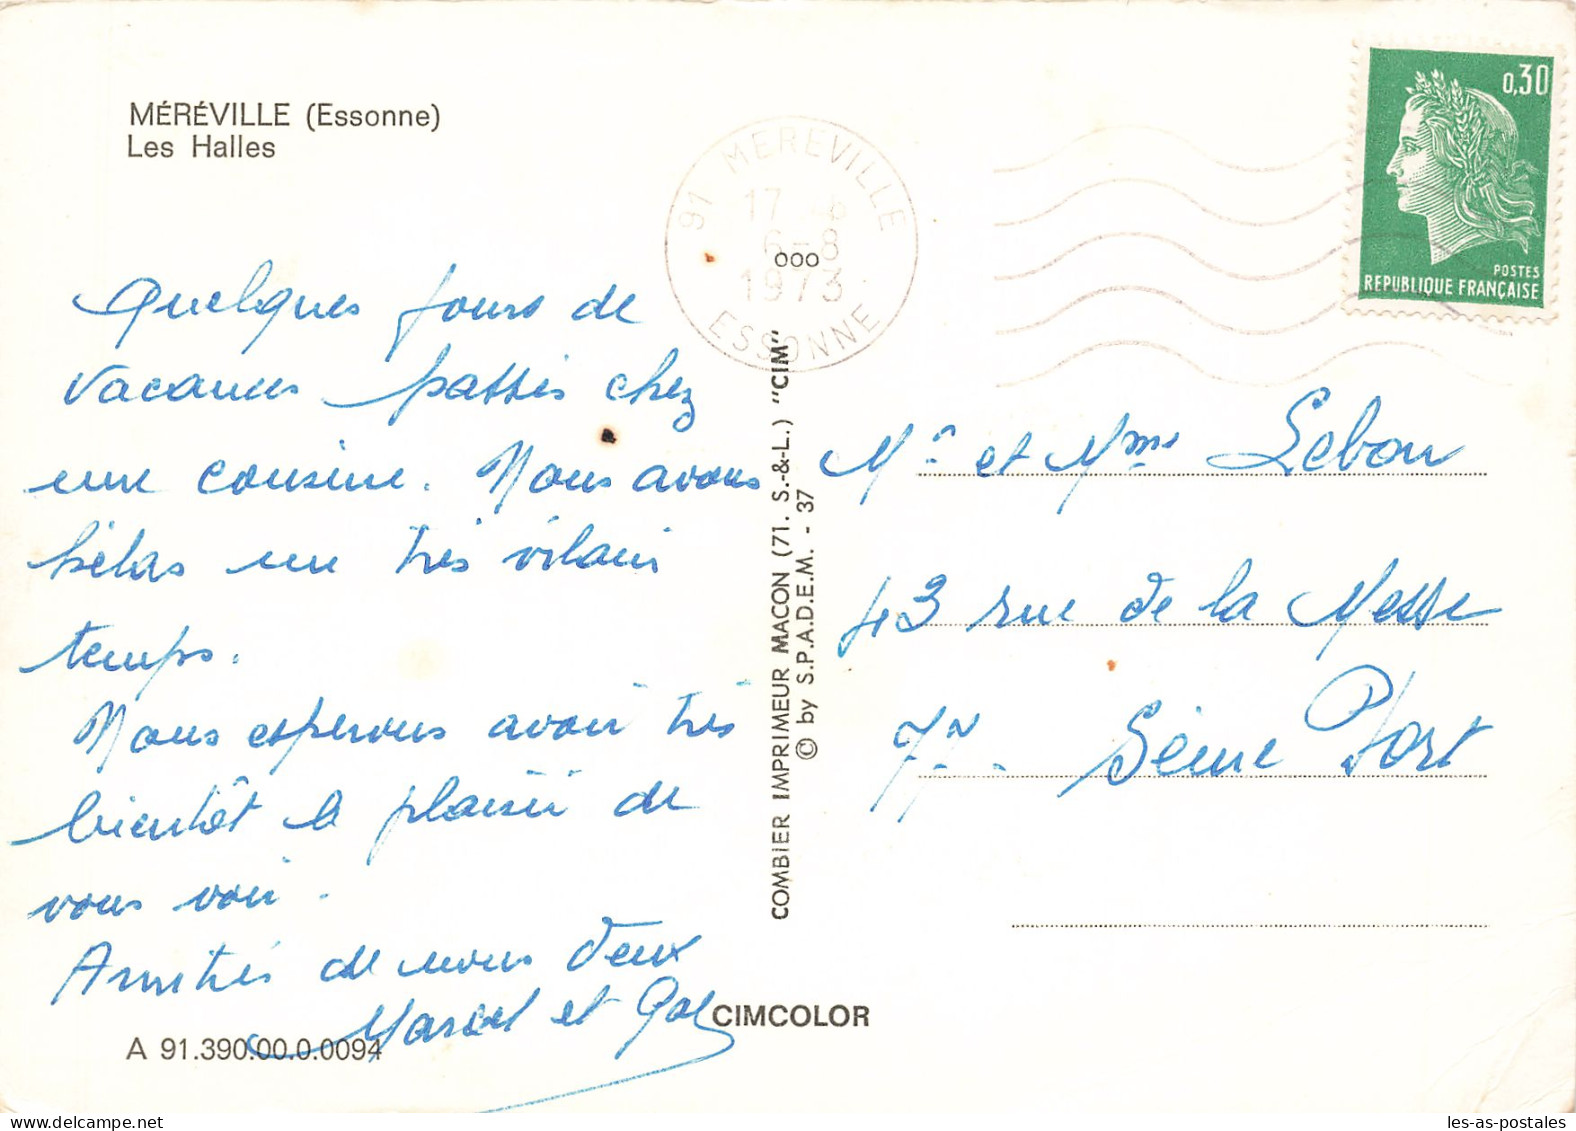 MÉRÉVILLE (Essonne)
Les Halles
91 MEREVILLE
17
6-8
1973
ESSONNE
0,30
POSTES
REPUBLIQUE FRANÇAISE
Quelques jours de
vacances passés chez
une cousine. Nous avons
hélas un très vilain
temps.
Nous espérons avoir très
bientôt le plaisir de
vous voir.
Amitiés de nous deux
Marcel et
Mr et Mme Lebon
43 rue de la Messe
77. Seine Port
COMBIER IMPRIMEUR MACON (71. S.-&-L.) "CIM"
© by S.P.A.D.E.M. - 37
ooo
CIMCOLOR
A 91.390.00.0.0094
les-as-postales